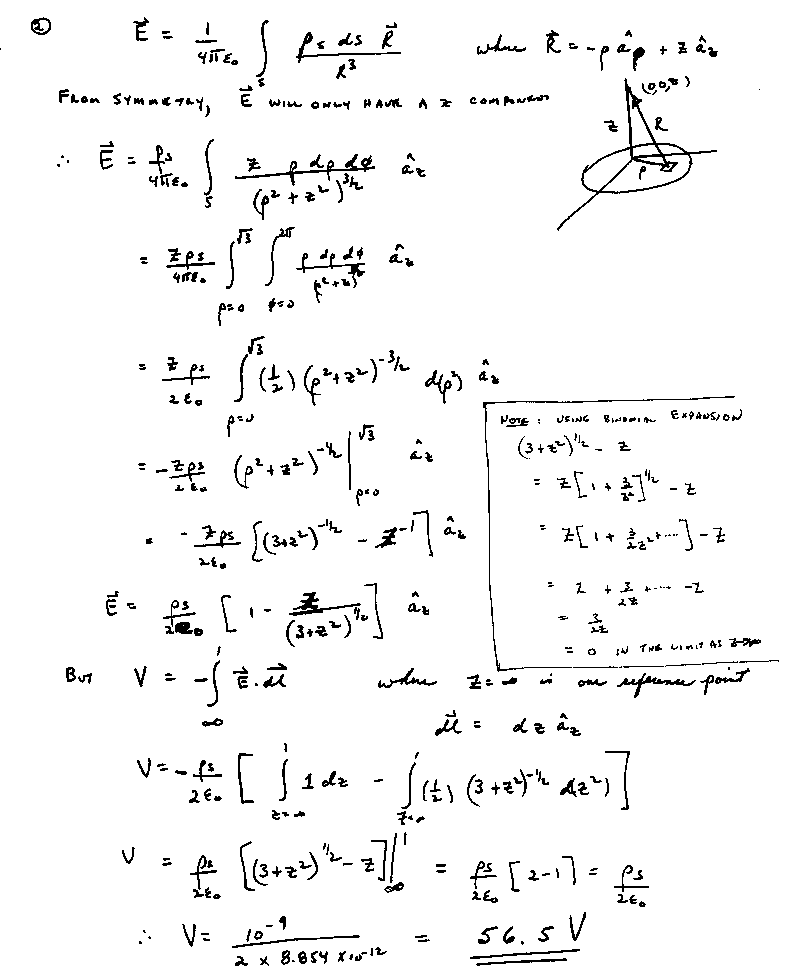 ② E⃗ = 1/(4πε₀) ∫_S ρs ds R⃗ / R³ where R⃗ = -ρ âρ + z âz
FROM SYMMETRY, E⃗ WILL ONLY HAVE A Z COMPONENT
(0,0,z)
z R
ρ
∴ E⃗ = ρs/(4πε₀) ∫_S z ρ dρ dφ / (ρ² + z²)^(3/2) âz
= zρs/(4πε₀) ∫_(ρ=0)^(√3) ∫_(φ=0)^(2π) ρ dρ dφ / (ρ² + z²)^(3/2) âz
= z ρs/(2ε₀) ∫_(ρ=0)^(√3) (1/2) (ρ²+z²)^(-3/2) d(ρ²) âz
= -zρs/(2ε₀) (ρ²+z²)^(-1/2) |_(ρ=0)^(√3) âz
= -zρs/(2ε₀) [(3+z²)^(-1/2) - z^(-1)] âz
E⃗ = ρs/(2ε₀) [1 - z/(3+z²)^(1/2)] âz
NOTE: USING BINOMIAL EXPANSION
(3+z²)^(1/2) - z
= z[1 + 3/z²]^(1/2) - z
= z[1 + 3/(2z²) + ....] - z
= z + 3/(2z) + .... - z
= 3/(2z)
= 0 IN THE LIMIT AS z→∞
BUT V = -∫_∞^1 E⃗ · dl⃗ where z=∞ is our reference point
dl⃗ = dz âz
V = -ρs/(2ε₀) [∫_(z=∞)^1 1 dz - ∫_(z=∞)^1 (1/2) (3+z²)^(-1/2) d(z²)]
V = ρs/(2ε₀) [(3+z²)^(1/2) - z] |_∞^1 = ρs/(2ε₀) [2-1] = ρs/(2ε₀)
∴ V = 10^(-9) / (2 × 8.854 × 10^(-12)) = 56.5 V